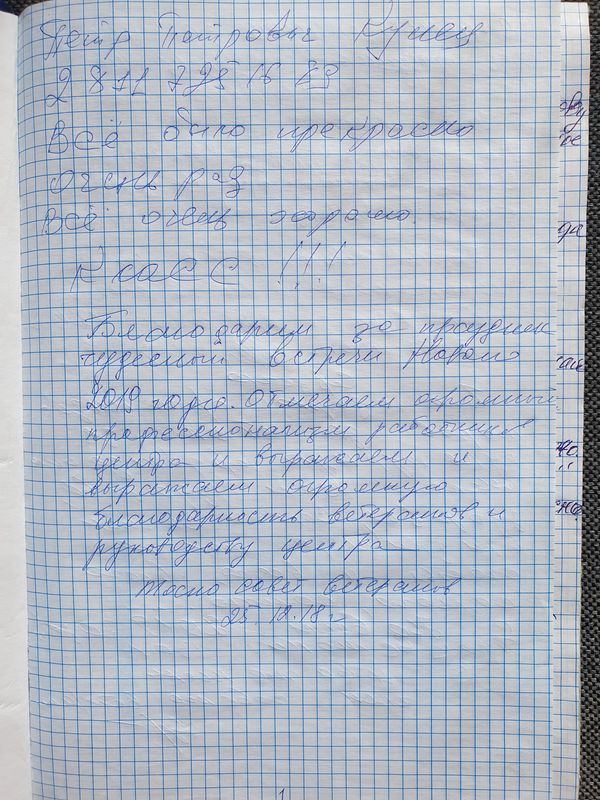 Пётр Петрович Купец
2 811 725 16 89
Всё было прекрасно
очень рад
Всё очень хорошо
Класс !!!
Благодарим за праздник
чудесный встречи Нового
2019 года. Отмечаем огромный
профессионализм работников
центра и выражаем и
выражаем огромную
благодарность ветеранов и
руководству центра
Тосно совет ветеранов
25.12.18г
1